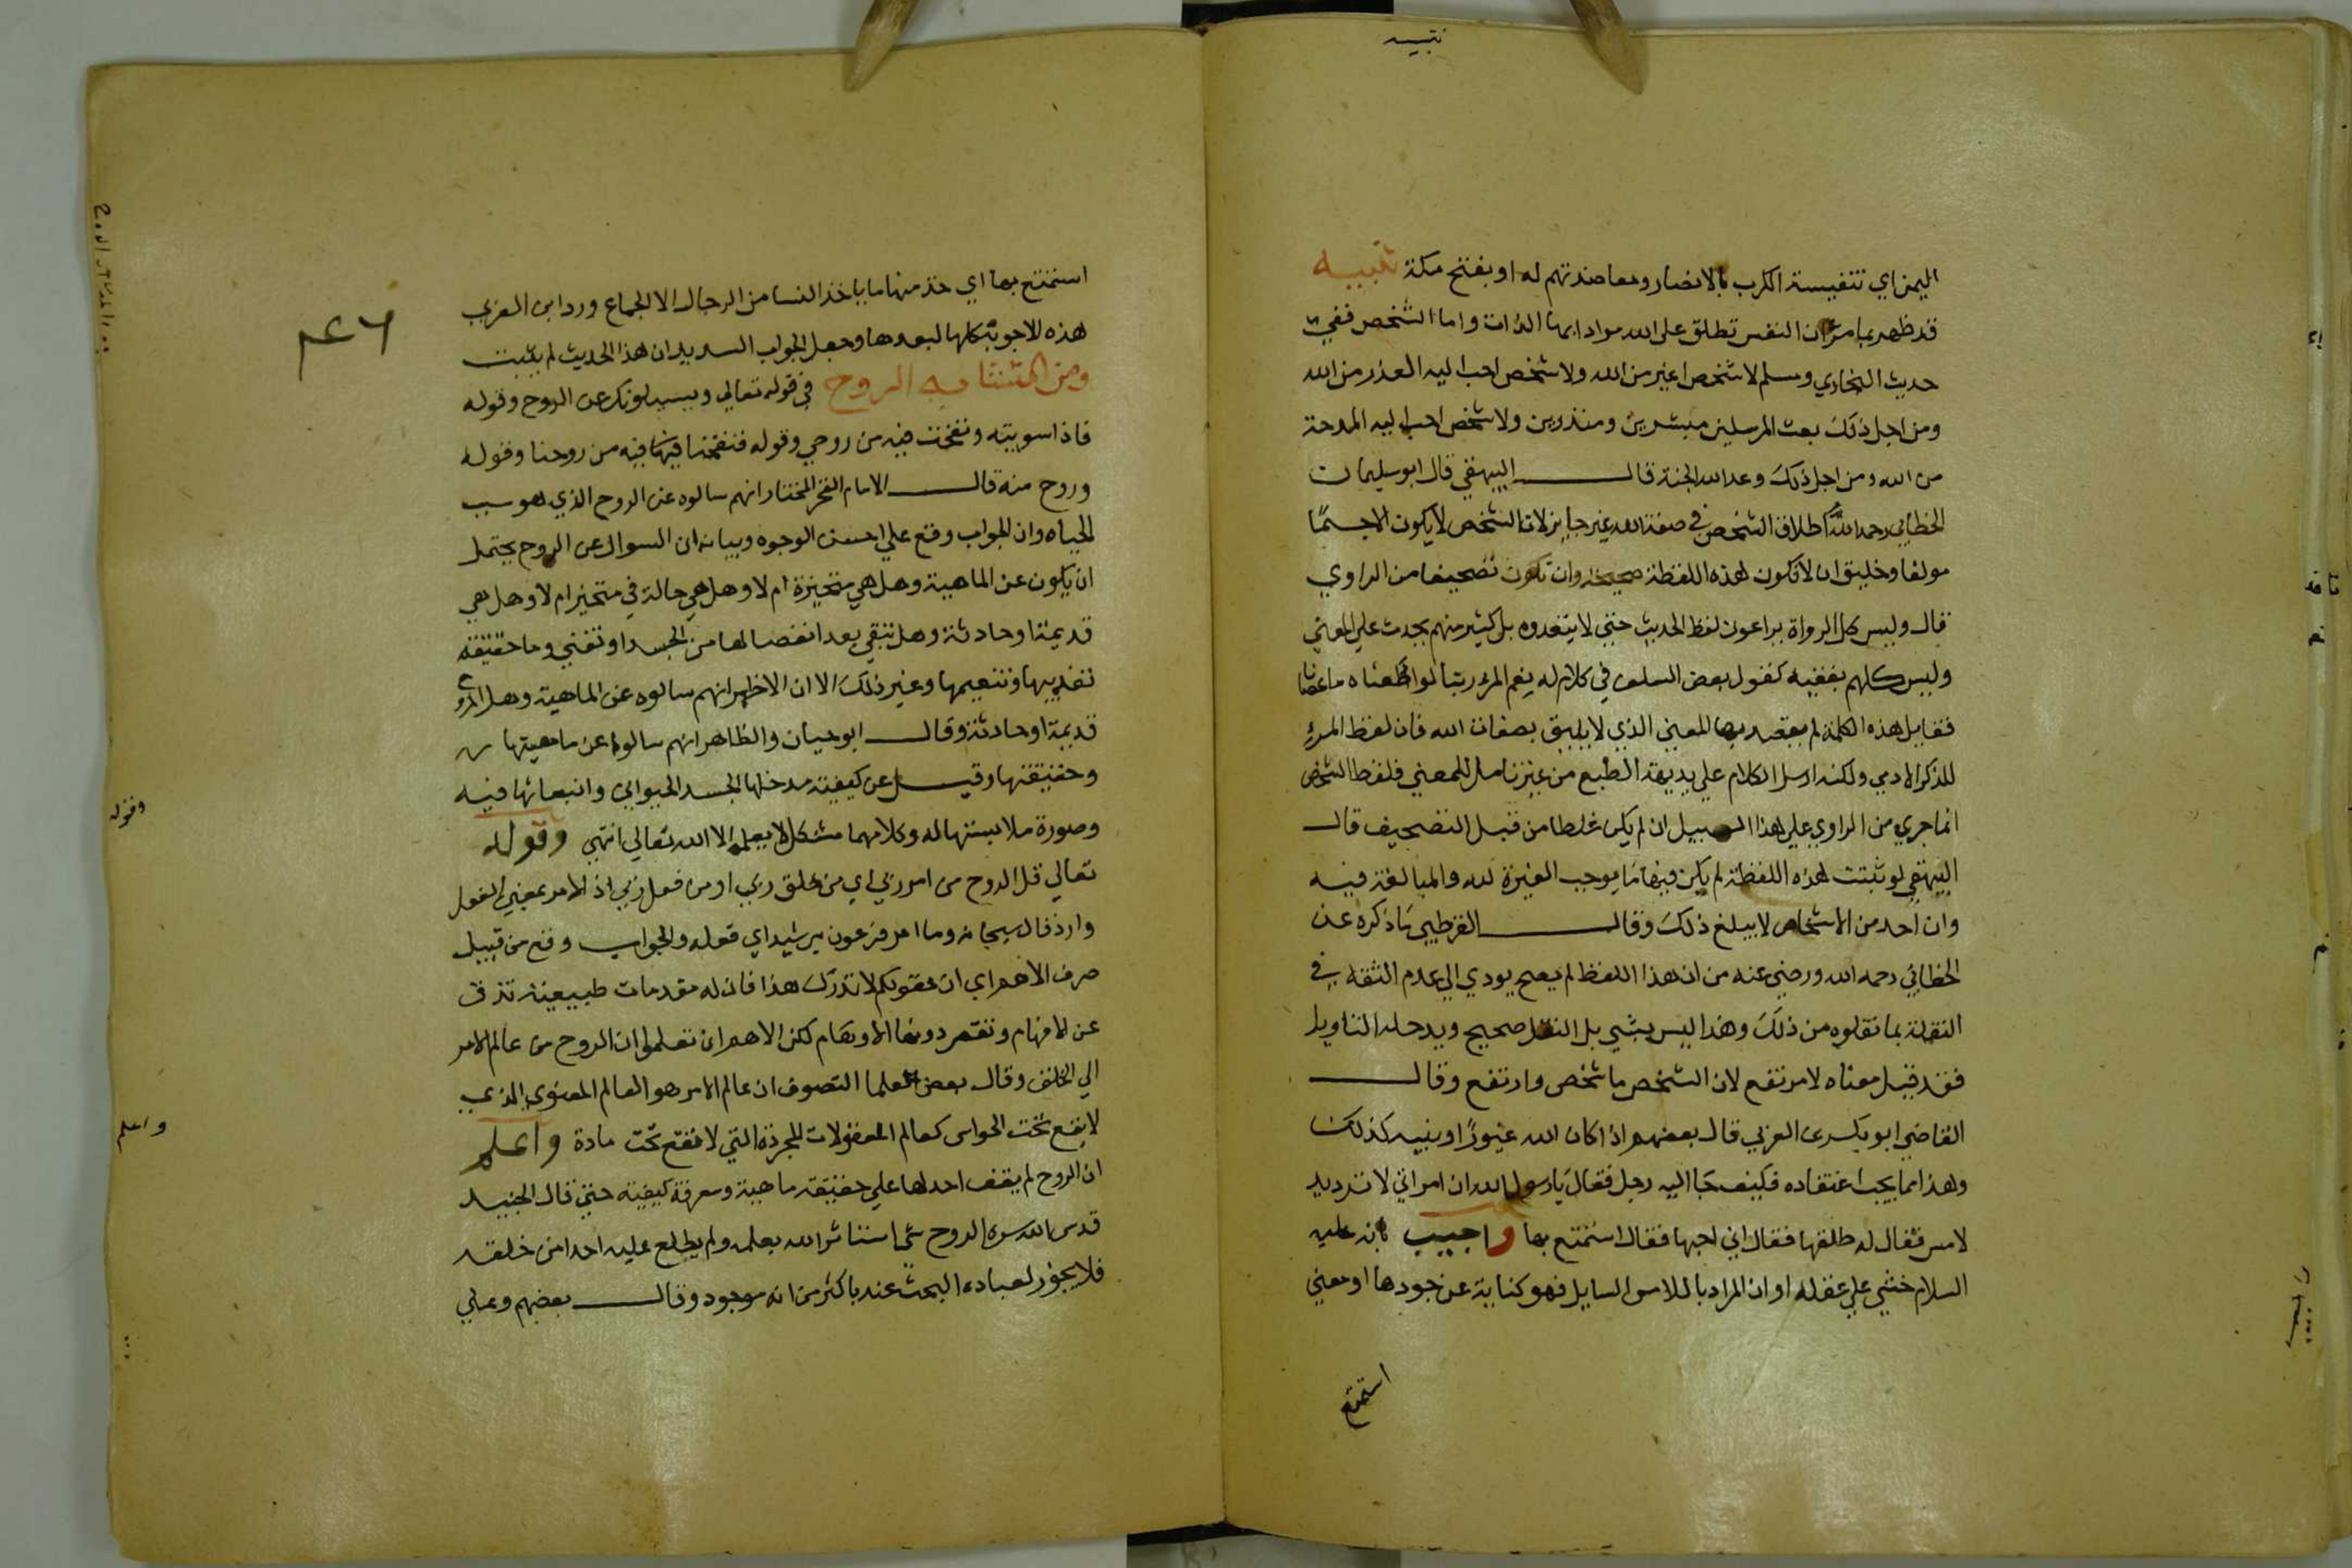 تنبيه
اليمن اي تنفيسة الكرب بالانصار ومعاضدتهم له او بفتح مكة تنبيه
قد ظهر بما مر ان النفس تطلق على الله مرادا بها الذات واما الشخص ففي
حديث البخاري ومسلم لا شخص اغير من الله ولا شخص احب اليه العذر من الله
ومن اجل ذلك بعث المرسلين مبشرين ومنذرين ولا شخص احب اليه المدحة
من الله ومن اجل ذلك وعد الله الجنة قال البيهقي قال ابو سليمان
الخطابي رحمه الله اطلاق الشخص في صفة الله غير جايز لان الشخص لا يكون الا جسمًا
مولفا وخليق ان لا تكون هذه اللفظة صحيحة وان تكون تصحيفا من الراوي
قال وليس كل الرواة يراعون لفظ الحديث حتى لا يتعدوه بل كثير منهم يحدث على المعنى
وليس كلهم بفقيه كقول بعض السلف في كلام له نعم المرء ربنا لو اطعناه ما عصانا
فقايل هذه الكلمة لم يقصد بها المعنى الذي لا يليق بصفات الله فان لفظ المرء
للذكر الادمي ولكنه ارسل الكلام على بديهة الطبع من غير تامل للمعنى فلفظ الشخص
انما جري من الراوي على هذا السبيل ان لم يكن غلطا من قبل التصحيف قال
البيهقي لو ثبتت هذه اللفظة لم يكن فيها ما يوجب الغيرة لله والمبالغة فيه
وان احد من الاشخاص لا يبلغ ذلك وقال القرطبي ما ذكره عن
الخطابي رحمه الله ورضي عنه من ان هذا اللفظ لم يصح يودي الى عدم الثقة في
النقلة بما نقلوه من ذلك وهذا ليس بشي بل النقل صحيح ويدخله التاويل
فقد قيل معناه لا مرتفع لان الشخص ما شخص وارتفع وقال
القاضي ابو بكر بن العربي قال بعضهم اذا كان الله غيورًا ونبيه كذلك
وهذا مما يجب اعتقاده فكيف جا اليه رجل فقال يا رسول الله ان امراتي لا ترد يد
لامس فقال له طلقها فقال اني احبها فقال استمتع بها واجيب بانه عليه
السلام خشي على عقله او ان المراد باللامس السايل فهو كناية عن جودها او معنى
استمتع
استمتع بها اي خذ منها ما ياخذ النسا من الرجال الا الجماع ورد ابن العربي
هذه الاجوبة كلها لبعدها وجعل الجواب السديد ان هذا الحديث لم يثبت
ومن المتشابه الروح في قوله تعالي ويسيلونك عن الروح وقوله
فاذا سويته ونفخت فيه من روحي وقوله فنفخنا فيها فيه من روحنا وقوله
وروح منه قال الامام الفخر المختار انهم سالوه عن الروح الذي هو سبب
الحياه وان الجواب وقع علي احسن الوجوه وبيانه ان السوال عن الروح يحتمل
ان يكون عن الماهية وهل هي متحيزة ام لا وهل هي حالة في متحيز ام لا وهل هي
قديمة او حادثة وهل تبقي بعد انفصالها من الجسد او تفني وما حقيقة
تعذيبها وتنعيمها وغير ذلك الا ان الاظهر انهم سالوه عن الماهية وهل الروح
قديمة او حادثة وقال ابو حيان والظاهر انهم سالوا عن ماهيتها
وحقيقتها وقيل عن كيفية مدخلها الجسد الحيواني وانبعاثها فيه
وصورة ملابستها له وكلامهما مشكل لا يعلمه الا الله تعالي انتهي وقوله
تعالي قل الروح من امر ربي اي من خلق ربي او من فعل ربي اذ الامر بمعني الفعل
وارد قال سبحانه وما امر فرعون برشيد اي فعله والجواب وقع من قبيل
صرف الاهم اي ان عقولكم لا تدرك هذا فان له مقدمات طبيعية تدق
عن الافهام وتقصر دونها الاوهام لكن الاهم ان تعلموا ان الروح من عالم الامر
الي الخلق وقال بعض علما التصوف ان عالم الامر هو العالم المعنوي الذي
لا يقع تحت الحواس كعالم المعقولات المجردة التي لا تقع تحت مادة واعلم
ان الروح لم يقف احد لها علي حقيقة ماهية ومعرفة كيفيته حتي قال الجنيد
قدس الله سره الروح شي استاثر الله بعلمه ولم يطلع عليه احدا من خلقه
فلا يجوز لعباده البحث عنه باكثر من انه موجود وقال بعضهم وعلي
وقوله
واعلم